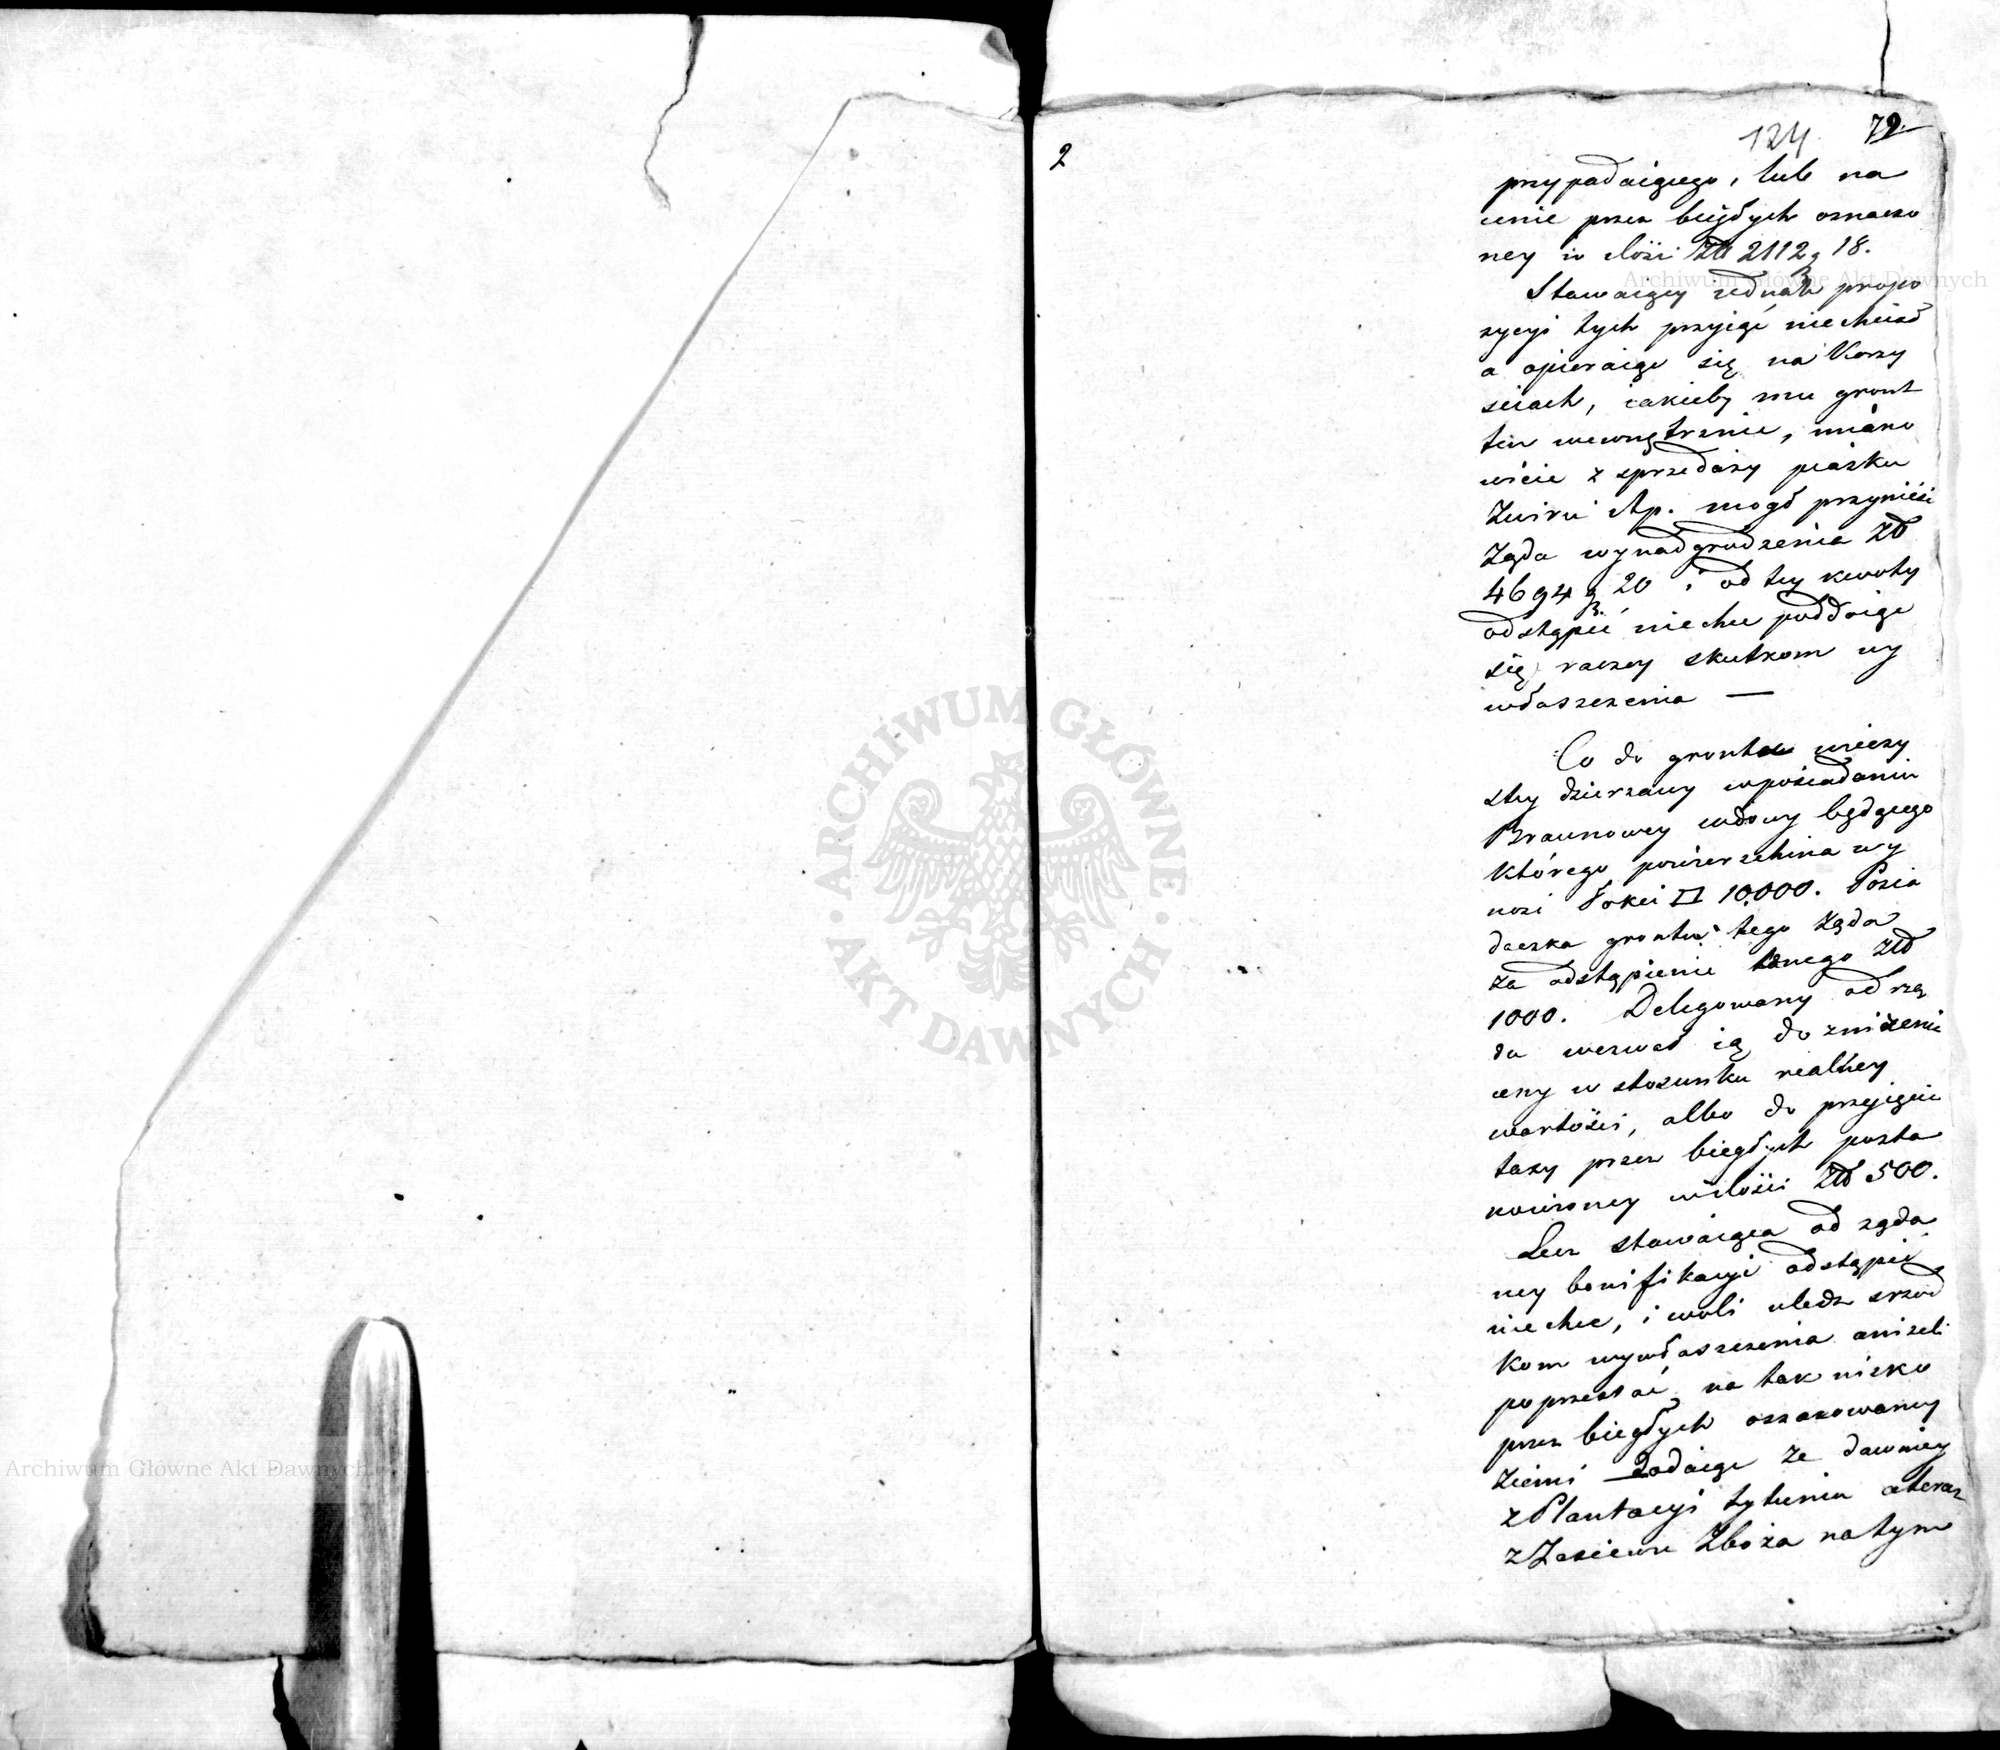 2
124. 79.
przypadaiącego, lub na
cenie przez biegłych oznaczo
ney w ilości Złt 2112 g 18.
Stawaiący iednak propo
zycyi tych przyiąć niechciał
a opieraiąc się na Korzy
ściach, iakieby mu gront
ten wewnętrznie, miano
wicie z sprzedaży piasku
Żwiru itp. mogł przynieść
Żąda wynadgrodzenia Zł
4694 g 20 i od tey kwoty
odstąpić niechce poddaiąc
się raczey skutkom wy
właszczenia —
Co do grontu wieczy
stey dzierzawy wposiadaniu
Braunowey wdowy będącego
którego powierzchnia wy
nosi Łokci □ 10,000. Posia
daczka grontu tego żąda
za odstąpienie onego Złt
1000. Delegowany od rzą
du wezwał ią do zniżenia
ceny w stosunku realney
wartości, albo do przyięcia
taxy przez biegłych posta
nowioney wilości Złt 500.
Lecz stawaiąca od rząda
ney bonifikacyi odstąpić
niechce, i woli uledz srzod
kom wywłaszczenia aniżeli
poprzestać na tak nisko
przez biegłych oszacowaney
Ziemi dodaiąc że dawniey
z Plantacyi tytuniu ateraz
z Zasiewu Zboża na tym
Archiwum Główne Akt Dawnych
Archiwum Główne Akt Dawnych
ARCHIWUM GŁÓWNE · AKT DAWNYCH ·